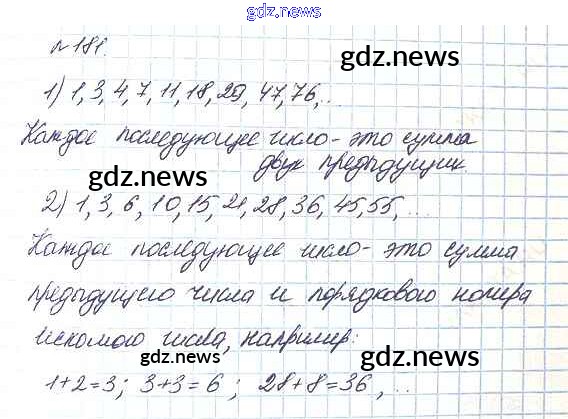 gdz.news
№181.
gdz.news
1) 1, 3, 4, 7, 11, 18, 29, 47, 76, ...
Каждое последующее число - это сумма
двух предыдущих.
gdz.news
2) 1, 3, 6, 10, 15, 21, 28, 36, 45, 55, ...
gdz.news
Каждое последующее число - это сумма
предыдущего числа и порядкового номера
искомого числа, например:
gdz.news
gdz.news
1+2=3; 3+3=6; 28+8=36, ...